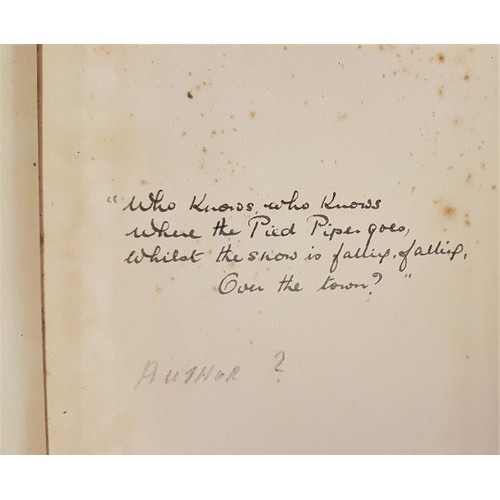 "Who Knows, who Knows
Where the Pied Piper goes,
Whilst the snow is falling, falling,
Over the town?"
AUTHOR ?